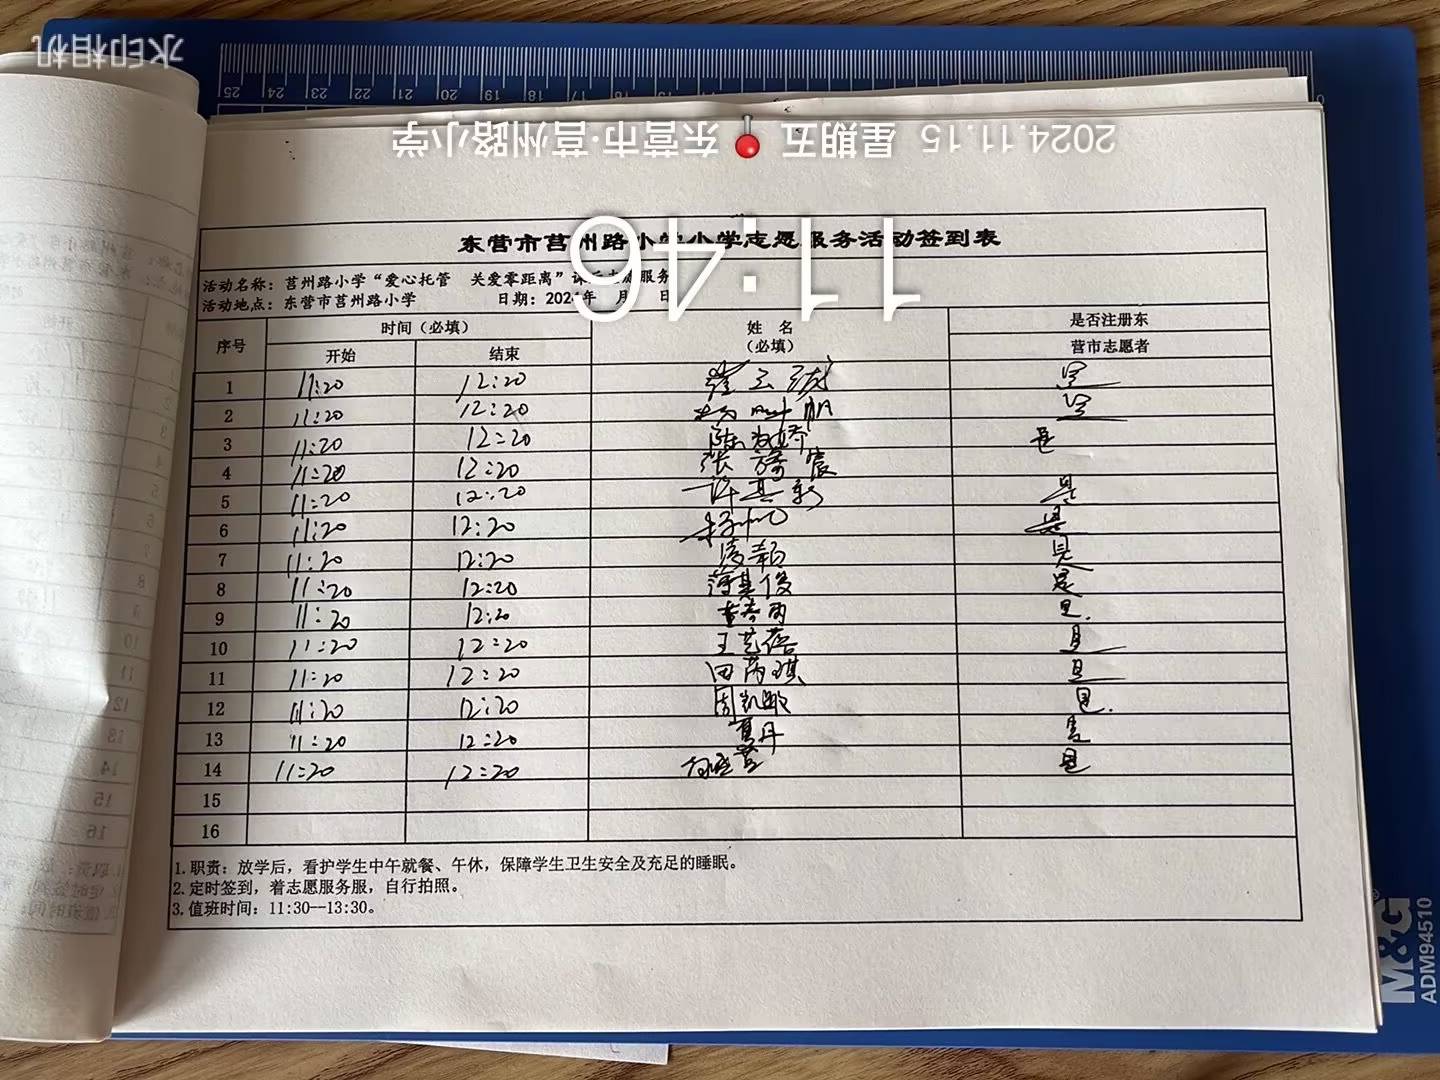 水印相机
25 24 23 22 21 20 19 18 17
2024.11.15 星期五 东营市·莒州路小学
11:46
东营市莒州路小学小学志愿服务活动签到表
活动名称：莒州路小学“爱心托管 关爱零距离”课后志愿服务
活动地点：东营市莒州路小学 日期：2024年 月 日
序号 时间（必填） 姓 名 是否注册东
开始 结束 （必填） 营市志愿者
1 11:20 12:20 是
2 11:20 12:20 是
3 11:20 12:20 是
4 11:20 12:20
5 11:20 12:20 是
6 11:20 12:20 是
7 11:20 12:20 凌翱 是
8 11:20 12:20 薄其俊 是
9 11:20 12:20 是.
10 11:20 12:20 王艺蓓 是
11 11:20 12:20 田芮琪 是
12 11:20 12:20 周凯敏 是.
13 11:20 12:20 葛丹 是
14 11:20 12:20 是
15
16
1.职责：放学后，看护学生中午就餐、午休，保障学生卫生安全及充足的睡眠。
2.定时签到，着志愿服务服，自行拍照。
3.值班时间：11:30--13:30。
M&G
ADM94510